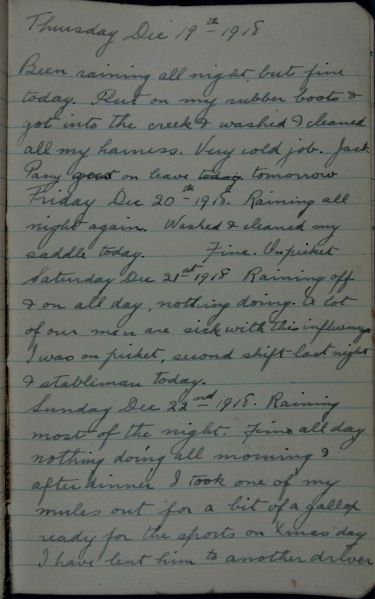 Thursday Dec 19th 1918
Been raining all night but fine
today. Put on my rubber boots &
got into the creek & washed & cleaned
all my harness. Very cold job. Jack
Parry goes on leave today. tomorrow
Friday Dec 20th 1918. Raining all
night again. Washed & cleaned my
saddle today. Fine. On picket
Saturday Dec 21st 1918 Raining off
& on all day, nothing doing. A lot
of our men are sick with this influenza
I was on picket, second shift last night
& stableman today.
Sunday Dec 22nd 1918. Raining
most of the night. Fine all day
nothing doing all morning &
after dinner I took one of my
mules out for a bit of a gallop
ready for the sports on Xmas day
I have lent him to another driver